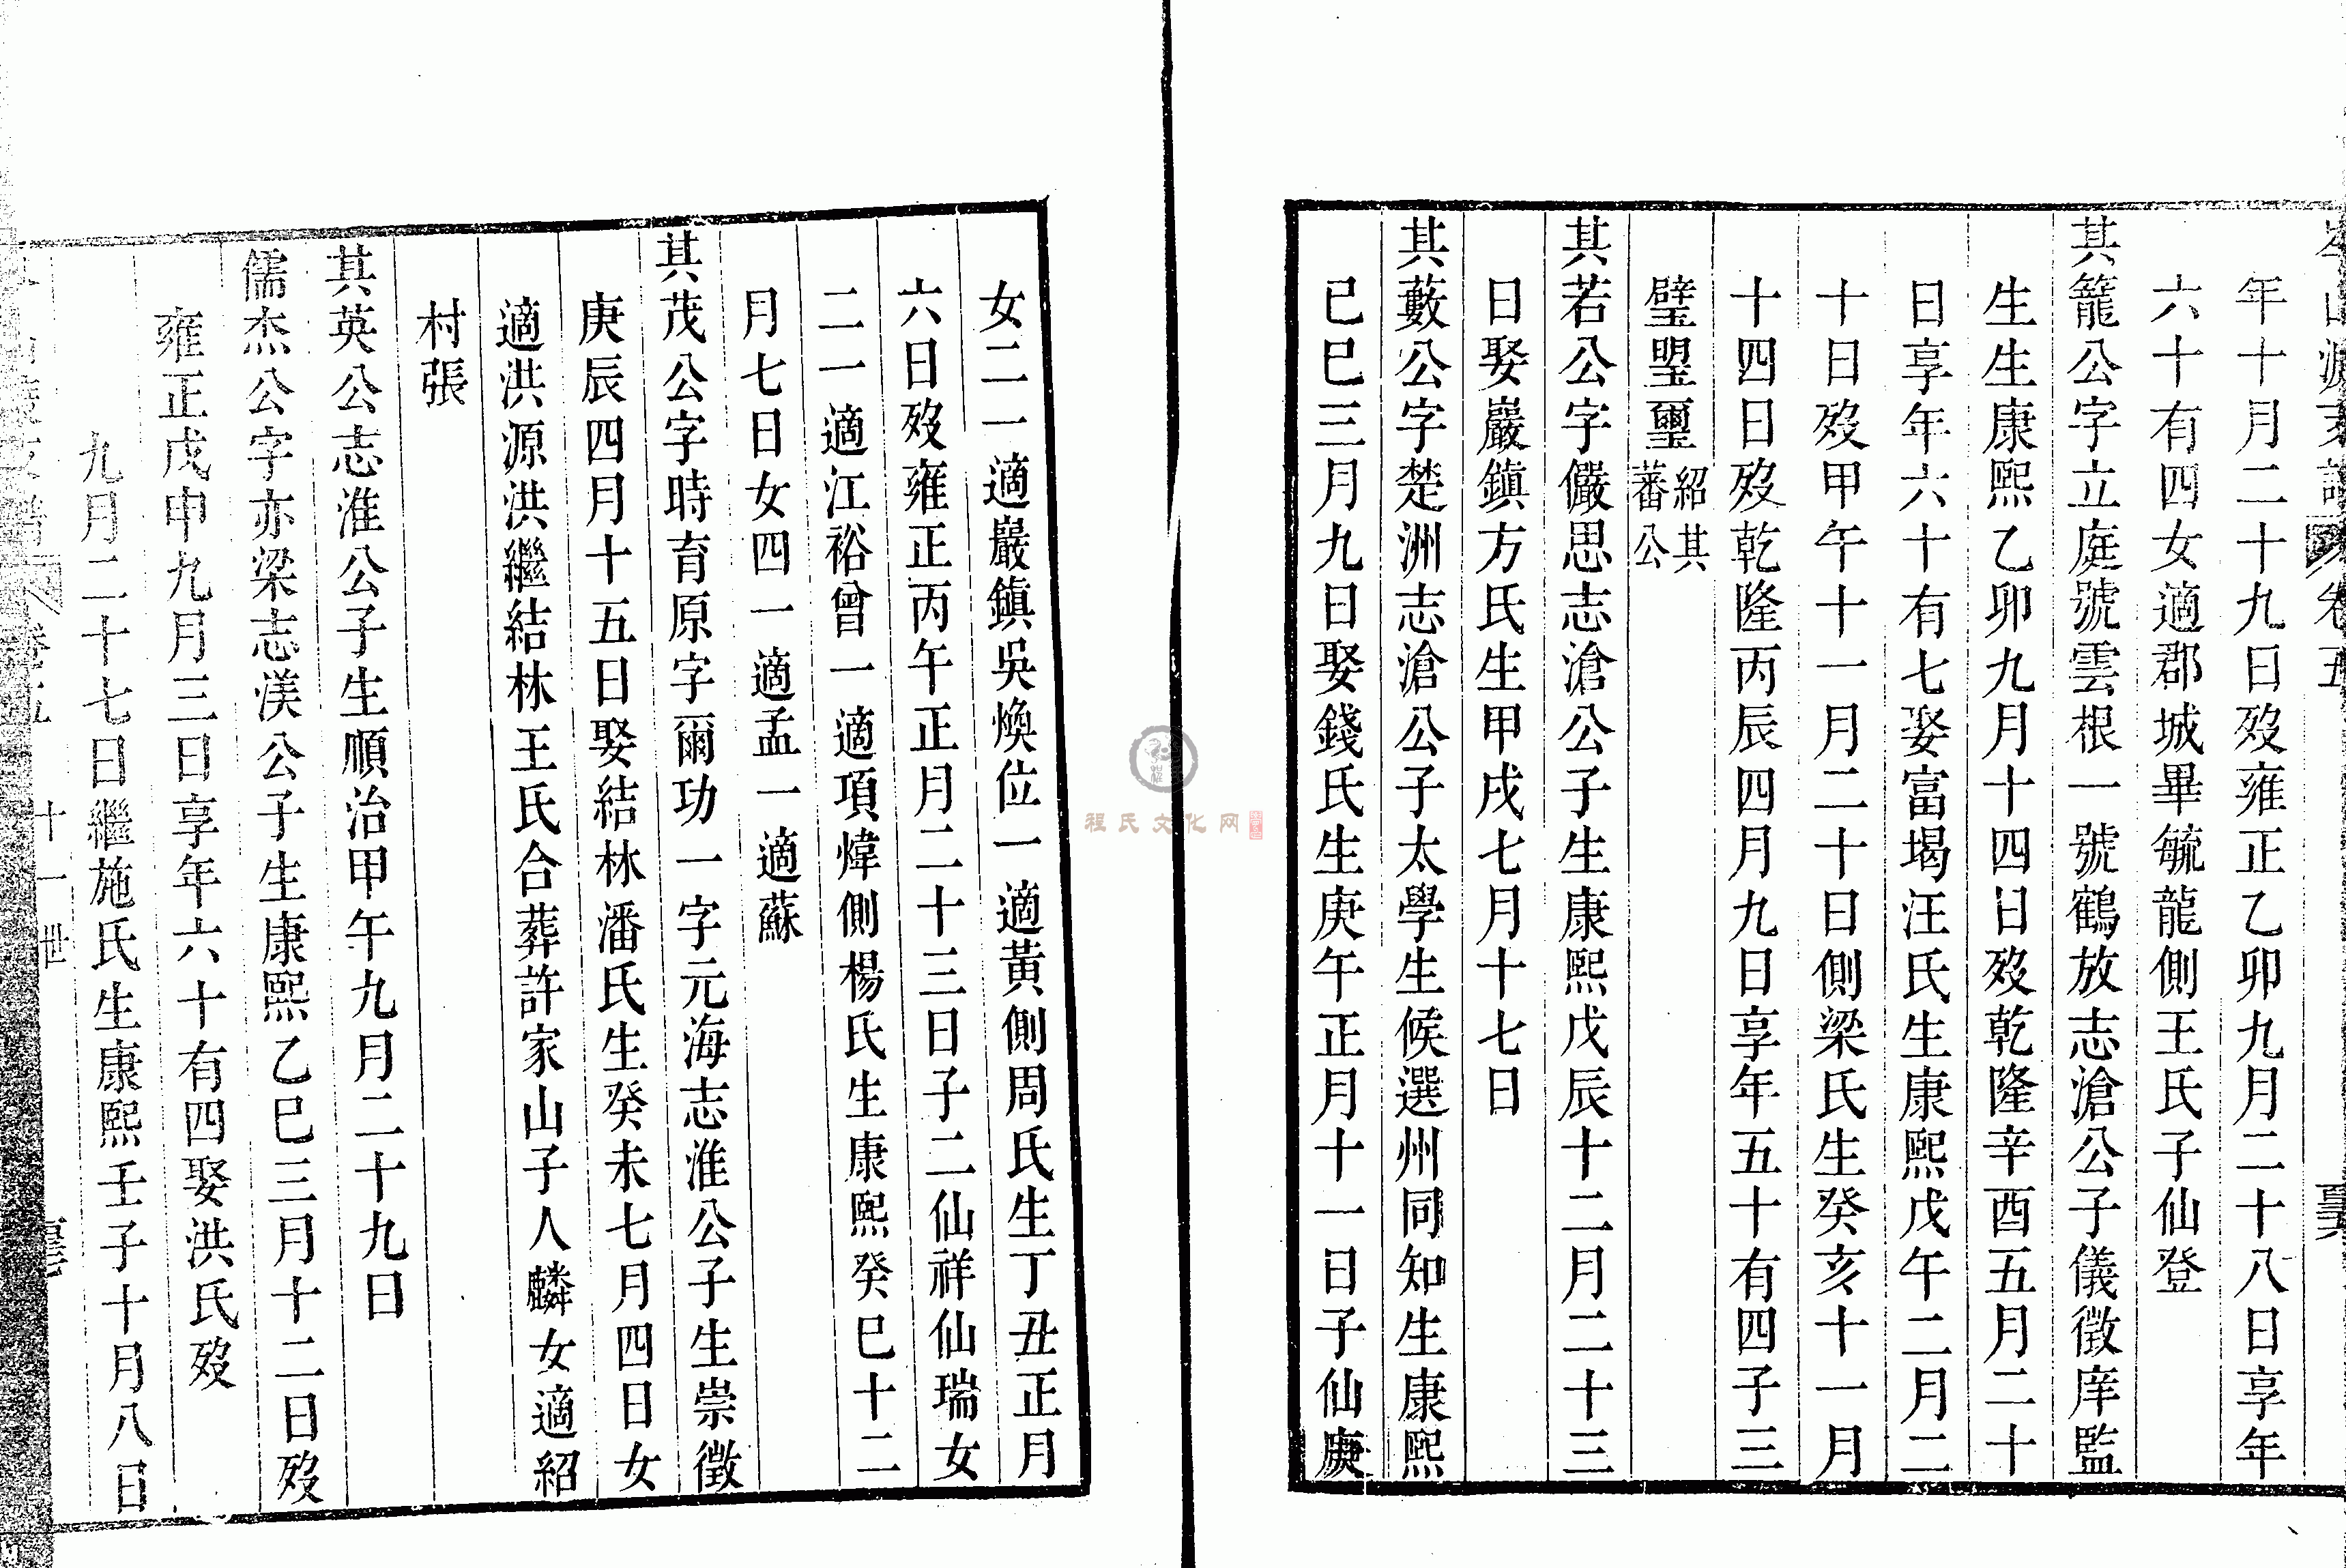 年十月二十九日歿雍正乙卯九月二十八日享年
六十有四女適郡城畢毓龍側王氏子仙登
其籠公字立庭號雲根一號鶴放志滄公子儀徵庠監
生生康熙乙卯九月十四日歿乾隆辛酉五月二十
日享年六十有七娶富堨汪氏生康熙戊午二月二
十日歿甲午十一月二十日側梁氏生癸亥十一月
十四日歿乾隆丙辰四月九日享年五十有四子三
璧瞾璽紹其蕃公
其若公字儼思志滄公子生康熙戊辰十二月二十三
日娶巖鎮方氏生甲戌七月十七日
其藪公字楚洲志滄公子太學生候選州同知生康熙
己巳三月九日娶錢氏生庚午正月十一日子仙庚
程氏文化网
女二一適巖鎮吳煥位一適黃側周氏生丁丑正月
六日歿雍正丙午正月二十三日子二仙祥仙瑞女
二一適江裕曾一適項煒側楊氏生康熙癸巳十二
月七日女四一適孟一適蘇
其茂公字時育原字爾功一字元海志淮公子生崇徵
庚辰四月十五日娶結林潘氏生癸未七月四日女
適洪源洪繼結林王氏合葬許家山子人麟女適紹
村張
其英公志淮公子生順治甲午九月二十九日
儒杰公字亦梁志渼公子生康熙乙巳三月十二日歿
雍正戊申九月三日享年六十有四娶洪氏歿
九月二十七日繼施氏生康熙壬子十月八日
卷五 十一世